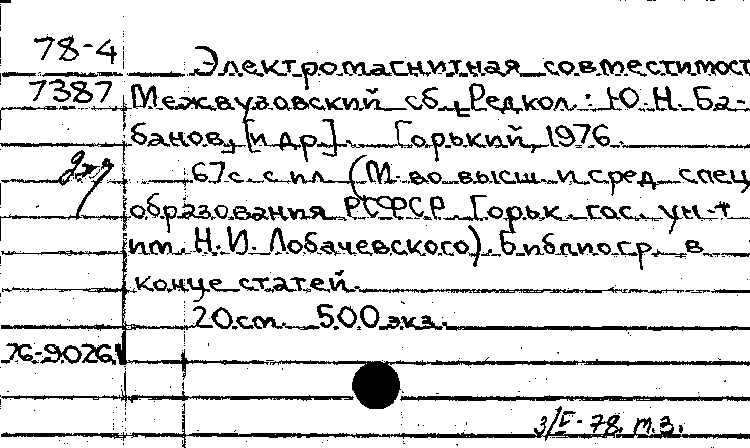 78-4 Электромагнитная совместимост
7387 Межвузовский сб. [Редкол.: Ю.Н. Ба-
банов, [и др.]. Горький, 1976.
67с. с ил (М-во высш. и сред. спец.
образования РСФСР. Горьк. гос. ун-т
им. Н.И. Лобачевского). Библиогр. в
конце статей.
20см. 500 экз.
76-90261
3/I-78. т.з.